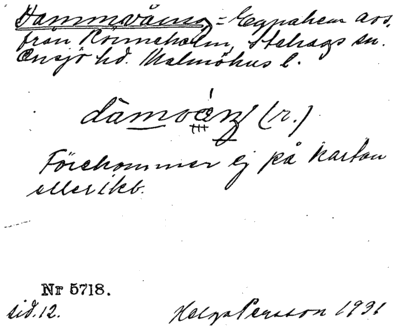 Dammvång = Egnahem avs.
från Rönneholm, Stehags sn.
Onsjö hd. Malmöhus l.
dàmoẃŋ (r.)
Förekommer ej på kartan
eller i kb.
Nr 5718.
sid. 12.
Helge Persson 1931